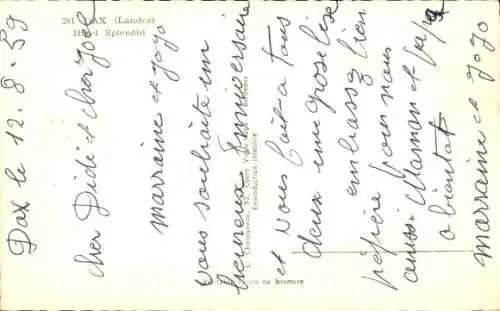 281 DAX (Landes)
Hôtel Splendid
Dax le 12.8.59
cher Didi et cher Joel
marraine et jojo
vous souhaite un
heureux Anniversaire
et vous fait a tous
deux une grose bise
embrassez bien
pépère pour nous
aussi Maman et papa
a bientot
marraine et jojo
Reproduction interdite
au bromure